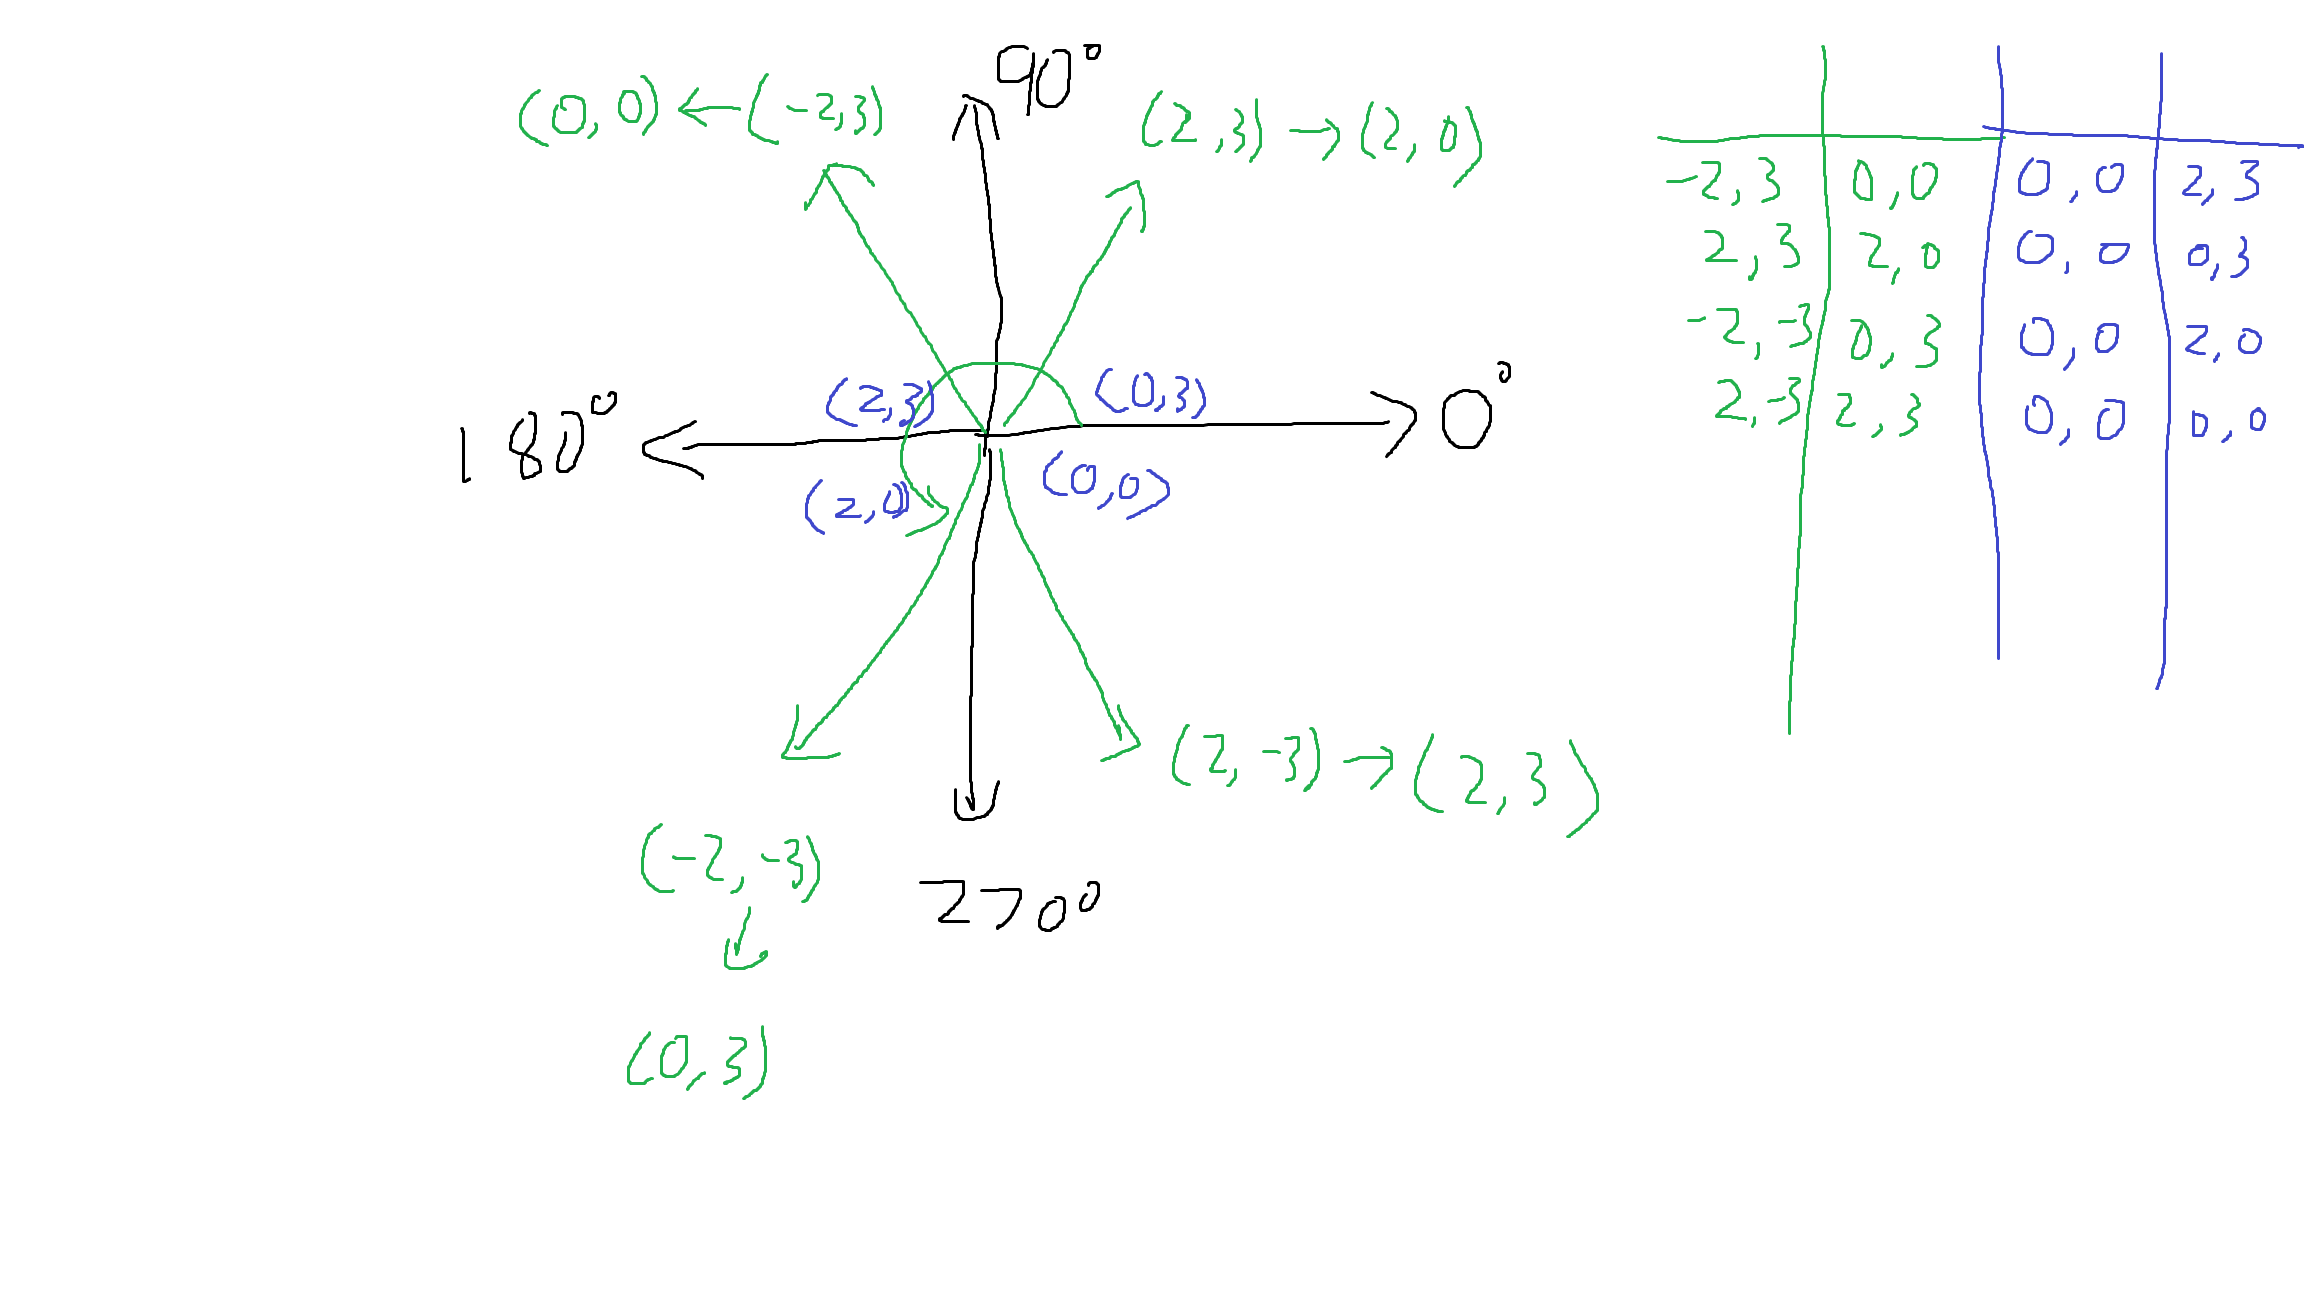 90°
(0,0) ← (-2,3)
(2,3) → (2,0)
180°
0°
(2,3)
(0,3)
(2,0)
(0,0)
(2,-3) → (2,3)
(-2,-3)
↓
(0,3)
270°
-2,3 0,0 0,0 2,3
2,3 2,0 0,0 0,3
-2,-3 0,3 0,0 2,0
2,-3 2,3 0,0 0,0